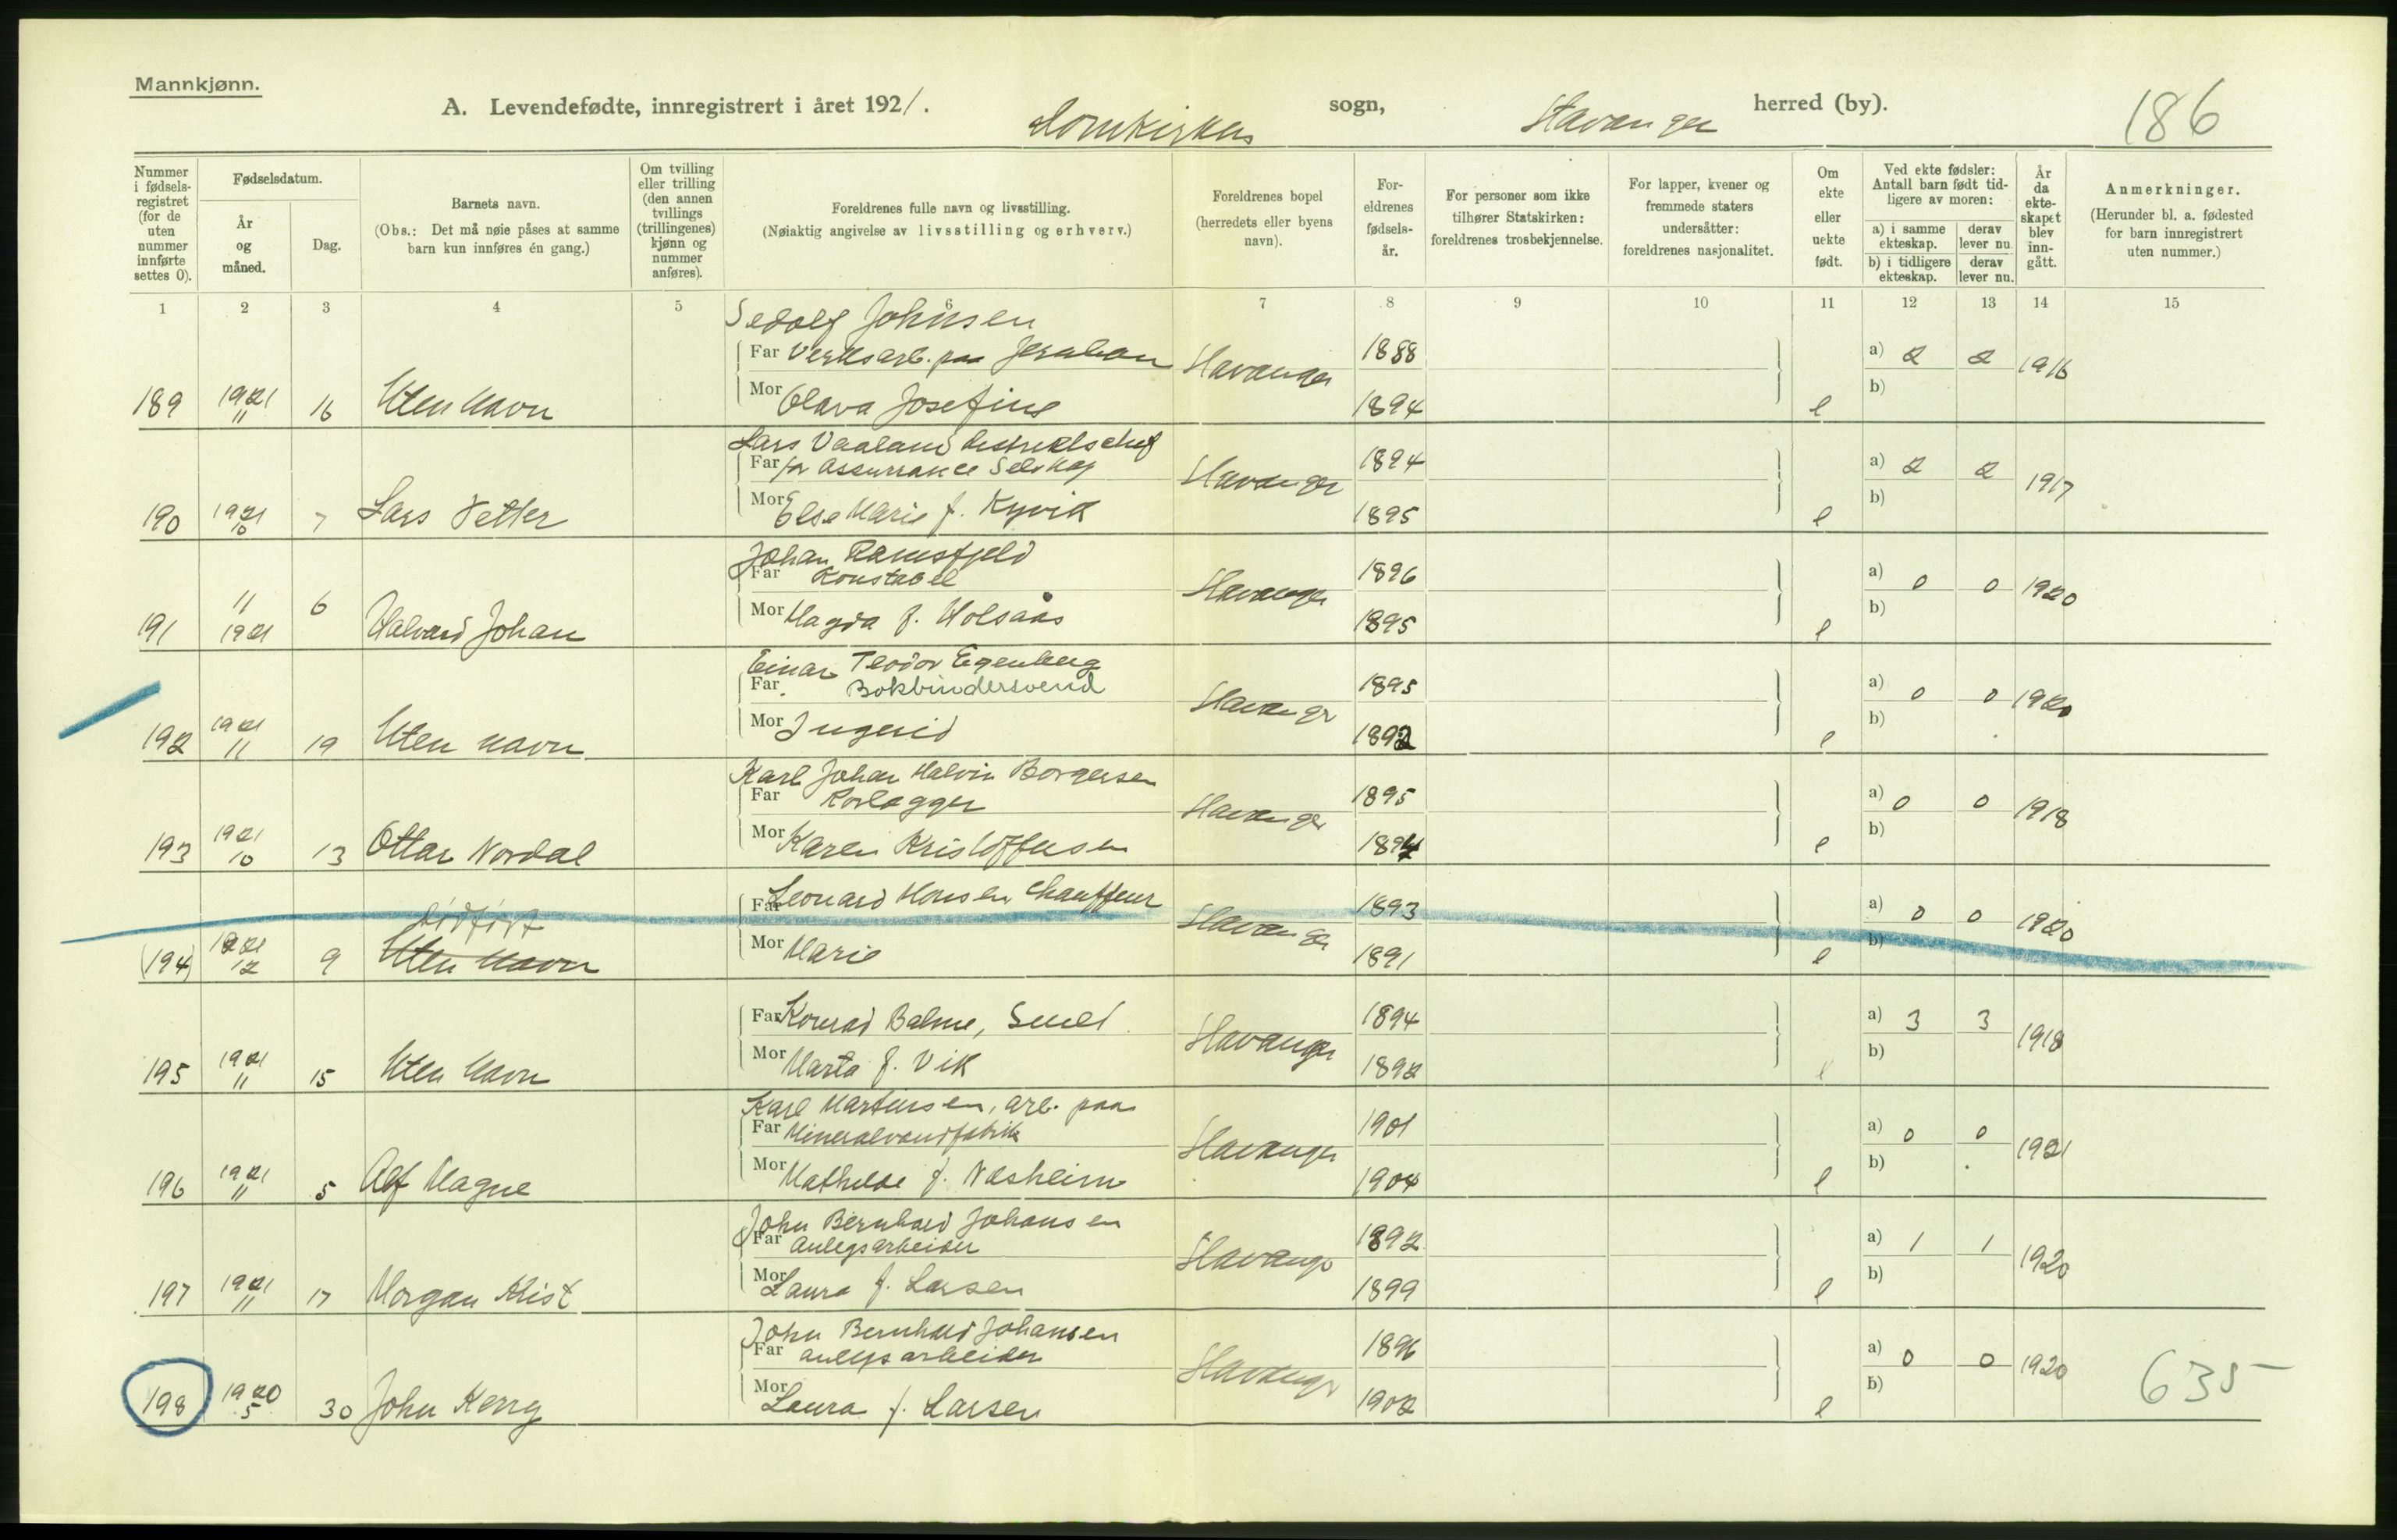 Mannkjønn.
A. Levendefødte, innregistrert i året 1921. Domkirkens sogn, Stavanger herred (by). 186
Nummer i fødselsregistret (for de uten nummer innførte settes 0).
Fødselsdatum.
År og måned.
Dag.
Barnets navn.
(Obs.: Det må nøie påses at samme barn kun innføres én gang.)
Om tvilling eller trilling (den annen tvillings (trillingenes) kjønn og nummer anføres).
Foreldrenes fulle navn og livsstilling.
(Nøiaktig angivelse av livsstilling og erhverv.)
Foreldrenes bopel (herredets eller byens navn).
Foreldrenes fødselsår.
For personer som ikke tilhører Statskirken: foreldrenes trosbekjennelse.
For lapper, kvener og fremmede staters undersåtter: foreldrenes nasjonalitet.
Om ekte eller uekte født.
Ved ekte fødsler: Antall barn født tidligere av moren:
a) i samme ekteskap.
derav lever nu.
b) i tidligere ekteskap.
derav lever nu.
År da ekteskapet blev inngått.
Anmerkninger.
(Herunder bl. a. fødested for barn innregistrert uten nummer.)
1 2 3 4 5 6 7 8 9 10 11 12 13 14 15
Sedolf Johnsen
Far Verksarb. paa Stavanger 1888 a) 2 2 1916
189 1921 11 16 Uten navn Mor Olava Josefine 1894 e b)
Lars Vaaland
Far for Assurrance Selskap Stavanger 1894 a) 2 2 1917
190 1921 10 7 Lars Petter Mor Else Marie f. Kyvik 1895 e b)
Johan Ramsfjeld
Far Konstabel Stavanger 1896 a) 0 0 1920
191 11 1921 6 Halvard Johan Mor Magda f. Holsaas 1895 e b)
Einar Teodor Egenberg
Far Bokbindersvend Stavanger 1895 a) 0 0 1920
192 1921 11 19 Uten navn Mor Ingerid 1892 e b)
Karl Johan Halvin Borgersen
Far Rørlægger Stavanger 1895 a) 0 0 1918
193 1921 10 13 Ottar Nordal Mor Karen Kristoffersen 1894 e b)
Far Leonard Hansen Chauffeur Stavanger 1893 a) 0 0 1920
dødfødt
(194) 1921 12 9 Uten navn Mor Marie 1891 e b)
Far Konrad Balme, Smed Stavanger 1894 a) 3 3 1918
195 1921 11 15 Uten navn Mor Marta f. Vik 1892 e b)
Karl Martinsen, arb. paa
Far Mineralvandfabrik Stavanger 1901 a) 0 0 1921
196 1921 11 5 Alf Magne Mor Mathilde f. Næsheim 1904 e b)
John Bernhard Johansen
Far anlegsarbeider Stavanger 1892 a) 1 1 1920
197 1921 11 17 Morgan Mor Laura f. Larsen 1899 e b)
John Bernhard Johansen
Far anlegsarbeider Stavanger 1896 a) 0 0 1920 635
198 1920 5 30 John Mor Laura f. Larsen 1902 e b)